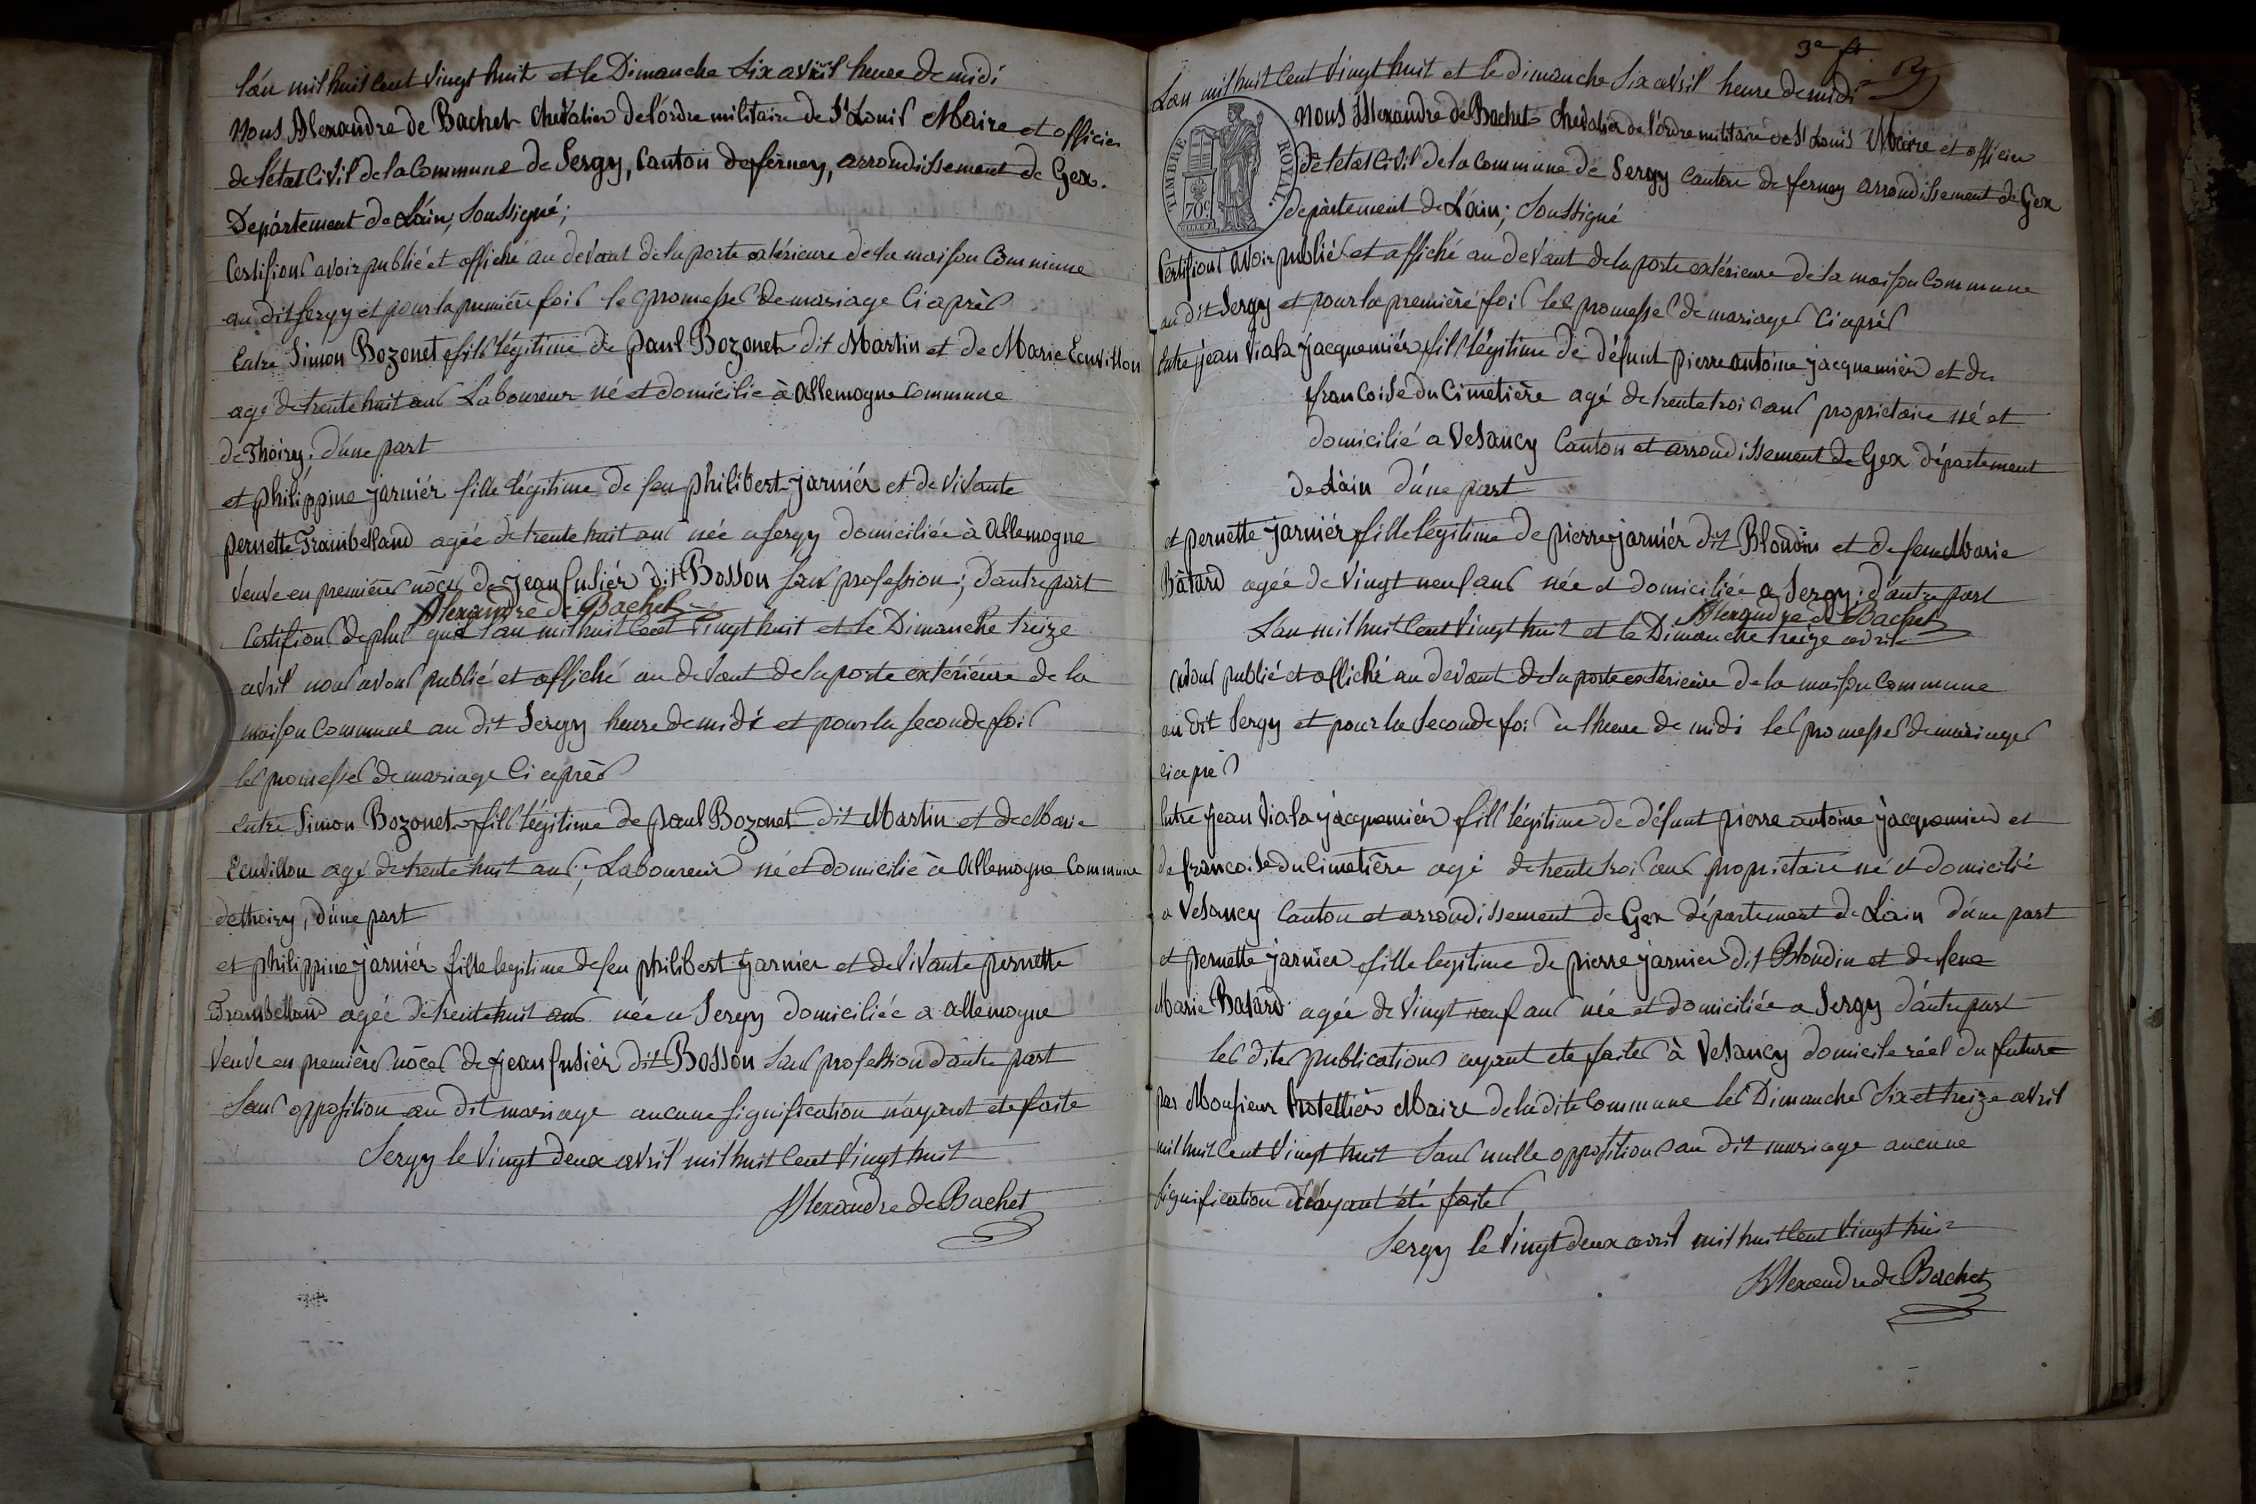 L'an mil huit cent vingt huit et le Dimanche six avril heure de midi
Nous Alexandre de Bachet Chevalier de l'ordre militaire de St Louis Maire et officier
de l'état Civil de la Commune de Sergy, Canton de ferney, arrondissement de Gex.
Département de L'ain, soussigné;
Certifions avoir publié et affiché au devant de la porte extérieure de la maison Commune
au dit Sergy et pour la première fois les promesses de mariage Ci après
Entre Simon Bozonet fils légitime de paul Bozonet dit Martin et de Marie Ecuvillon
agé de trente huit ans Laboureur né et domicilié à Allemogne Commune
de Thoiry. d'une part
et philippine jarniér fille légitime de feu philibert jarniér et de vivante
pernette Trambelland agée de trente huit ans née a sergy domiciliée à Allemogne
veuve en premières nôces de jean fusiér dit Bosson sans profession; d'autre part
Alexandre de Bachet
Certifions de plus que l'an mil huit Cent vingt huit et le Dimanche treize
avril nous avons publié et affiché au devant de la porte extérieure de la
maison Commune au dit Sergy heure de midi et pour la seconde fois
les promesses de mariage Ci après
entre Simon Bozonet fils légitime de paul Bozonet dit Martin et de Marie
Ecuvillon agé de trente huit ans; Laboureur né et domicilié à Allemogne Commune
de thoiry, d'une part
et philippine jarniér fille legitime de feu philibert jarnier et de vivante pernette
Trambelland agée de trente huit ans née a Sergy domiciliée a allemogne
veuve en premières nôces de jean fusiér dit Bosson sans profession d'autre part
sans opposition au dit mariage aucune signification n'ayant ete faite
Sergy le vingt deux avril mil huit Cent vingt huit
Alexandre de Bachet
3e ft.
L'an mil huit Cent vingt huit et le dimanche six avril heure de midi
TIMBRE ROYAL
70c
Nous Alexandre de Bachet Chevalier de l'ordre militaire de St Louis Maire et officier
de l'etat Civil de la Commune de Sergy Canton de ferney arrondissement de Gex
departement de L'ain; soussigné
Certifions avoir publié et affiché au devant de la porte extérieure de la maison Commune
au dit Sergy et pour la première fois les promesses de mariages Ci après
Entre jean Viala jacquemiér fils légitime de défunt pierre antoine jacquemier et de
francoise du Cimetière agé de trente trois ans propriétaire né et
domicilié a Vesancy Canton et arrondissement de Gex département
de L'ain d'une part
et pernette jarniér fille légitime de pierre jarniér dit Blondin et de feue Marie
Bâtard agée de vingt neuf ans née et domiciliée a Sergy; d'autre part
Alexandre de Bachet
L'an mil huit Cent vingt huit et le Dimanche treize avril
avons publié et affiché au devant de la porte extérieure de la maison Commune
au dit Sergy et pour la seconde foi a l'heure de midi les promesses de mariages
ci après
Entre jean Viala jacquemiér fils légitime de défunt pierre antoine jacquemier et
de francoise du Cimetière agé de trente trois ans propriétaire né et domicilié
a Vesancy Canton et arrondissement de Gex département de L'ain d'une part
et pernette jarnier fille legitime de pierre jarnier dit Blondin et de feue
Marie Batard agée de vingt neuf ans née et domiciliée a Sergy d'autre part
les dites publications ayant ete faites à Vesancy domicile réel du future
par Monsieur Maire de la dite Commune les Dimanches six et treize avril
mil huit Cent vingt huit sans nulle oppositions au dit mariage aucune
signification n'ayant été faites
Sergy le vingt deux avril mil huit Cent vingt huit
Alexandre de Bachet